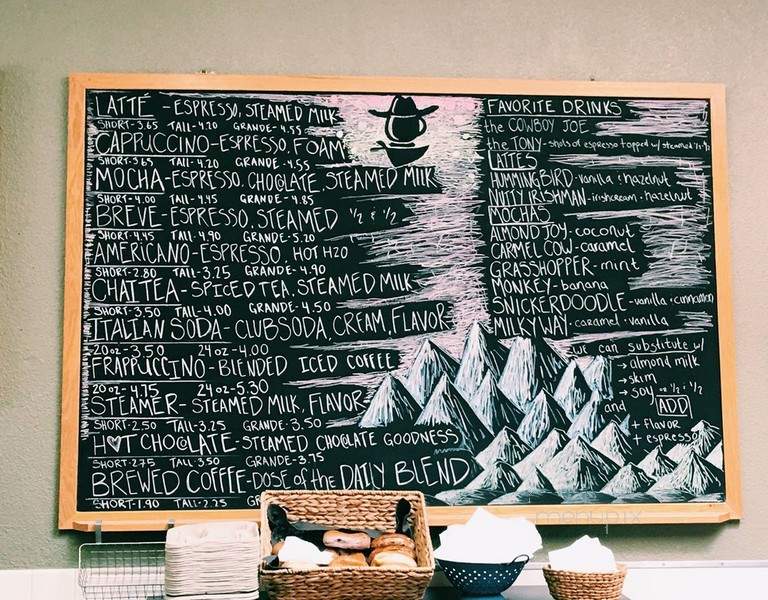 LATTÉ - ESPRESSO, STEAMED MILK
SHORT-3.65 TALL-4.20 GRANDE-4.55
CAPPUCCINO-ESPRESSO, FOAM
SHORT-3.65 TALL-4.20 GRANDE-4.55
MOCHA-ESPRESSO, CHOCOLATE, STEAMED MILK
SHORT-4.00 TALL-4.45 GRANDE-4.85
BREVE-ESPRESSO, STEAMED ½ & ½
SHORT-4.45 TALL-4.90 GRANDE-5.20
AMERICANO-ESPRESSO, HOT H2O
SHORT-2.80 TALL-3.25 GRANDE-4.90
CHAI TEA-SPICED TEA, STEAMED MILK
SHORT-3.50 TALL-4.00 GRANDE-4.50
ITALIAN SODA-CLUBSODA, CREAM, FLAVOR
20oz-3.50 24oz-4.00
FRAPPUCCINO-BLENDED ICED COFFEE
20oz-4.75 24oz-5.30
STEAMER-STEAMED MILK, FLAVOR
SHORT-2.50 TALL-3.25 GRANDE-3.50
H♥T CHOCOLATE-STEAMED CHOCOLATE GOODNESS
SHORT-2.75 TALL-3.50 GRANDE-3.75
BREWED COFFEE-DOSE of the DAILY BLEND
SHORT-1.90 TALL-2.25
FAVORITE DRINKS
the COWBOY JOE
the TONY-shots of espresso topped w/ steamed ½ & ½
LATTES
HUMMINGBIRD-vanilla & hazelnut
NUTTY IRISHMAN-irishcream & hazelnut
MOCHAS
ALMOND JOY-coconut
CARMEL COW-caramel
GRASSHOPPER-mint
MONKEY-banana
SNICKERDOODLE-vanilla & cinnamon
MILKY WAY-caramel & vanilla
we can substitute w/
→ almond milk
→ skim
→ soy or ½ & ½
and ADD
+ flavor
+ espresso